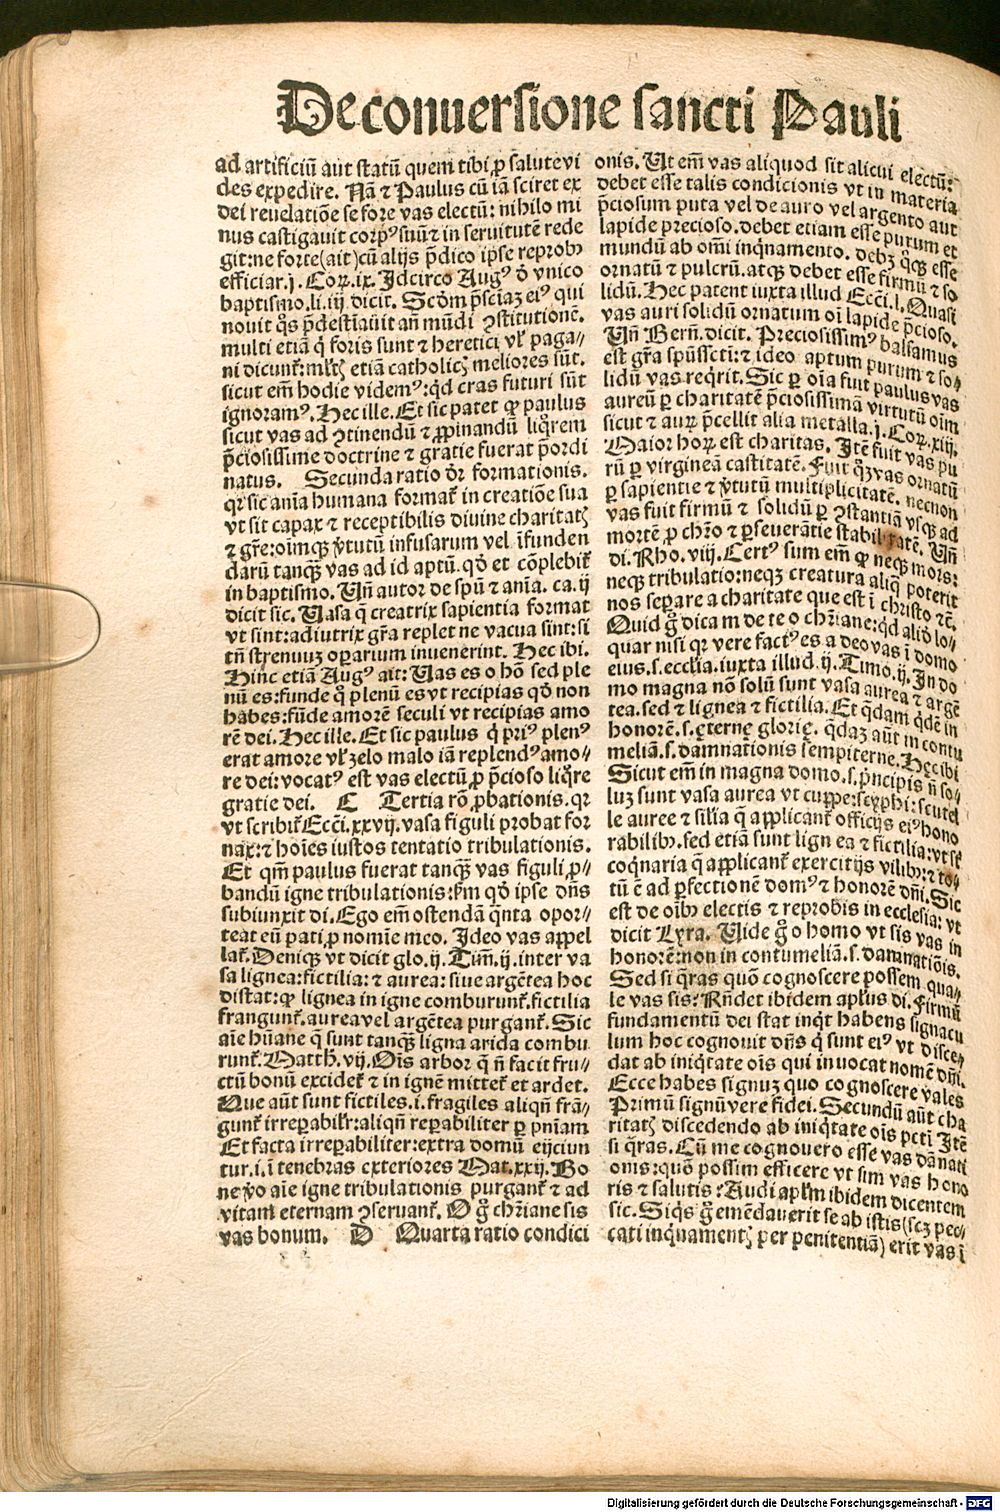 De conuersione sancti Pauli
ad artificiū aut statū quem tibi ꝓ salute vi
des expedire. Nā ⁊ Paulus cū iā sciret ex
dei reuelatiōe se fore vas electū: nihilo mi
nus castigauit corpꝰ suū ⁊ in seruitutē rede
git: ne forte (ait) cū alijs p̄dico ipse reprobꝰ
efficiar. j. Coꝝ. ix. Idcirco Augꝰ ď vnico
baptismo. li. iij. dicit. Scďm p̄sciaꝫ eiꝰ qui
nouit q̊s p̄destīauit an̄ mūdi ꝯstitutionē.
multi etiā q̇ foris sunt ⁊ heretici vl̓ paga⸗
ni dicunt᷑: ml̓tꝭ etiā catholicꝭ meliores sūt.
sicut em̄ hodie videmꝰ: qd̓ cras futuri sūt
ignoramꝰ. Hec ille. Et sic patet ꝙ paulus
sicut vas ad ꝯtinendū ⁊ ꝓpinandū liq̊rem
p̄ciosissime doctrine ⁊ gratie fuerat p̄ordi
natus. Secunda ratio d̓r formationis.
qꝛ sic anīa humana format᷑ in creatiōe sua
vt sit capax ⁊ receptibilis diuine charitatꝭ
⁊ gr̄e: oīmqꝫ v̓tutū infusarum vel īfunden
darū tanqꝫ vas ad id aptū. qd̓ et cōplebit᷑
in baptismo. Vn̄ autor de spū ⁊ anīa. ca. ij
dicit sic. Uasa q̄ creatrix sapientia format
vt sint: adiutrix gr̄a replet ne vacua sint: si
tn̄ strenuuꝫ oꝑarium inuenerint. Hec ibi.
Hinc etiā Augꝰ ait: Uas es o hō sed ple
nū es: funde q̊ plenū es vt recipias qd̓ non
habes: fūde amorē seculi vt recipias amo
rē dei. Hec ille. Et sic paulus q̇ priꝰ plenꝰ
erat amore vl̓ zelo malo iā replendꝰ amo⸗
re dei: vocatꝰ est vas electū ꝓ p̄cioso liq̊re
gratie dei. C Tertia rō ꝓbationis. qꝛ
vt scribit᷑ Ecci. xxvij. vasa figuli probat for
nax: ⁊ hoīes iustos tentatio tribulationis.
Et qm̄ paulus fuerat tanqꝫ vas figuli ꝓ⸗
bandū igne tribulationis: s̓m qd̓ ipse dn̄s
subiunxit di. Ego em̄ ostendā q̄nta opor⸗
teat eū pati ꝓ nomīe meo. Ideo vas appel
lat᷑. Deniqꝫ vt dicit glo. ij. Tim̄. ij. inter va
sa lignea: fictilia: ⁊ aurea: siue argētea hoc
distat: ꝙ lignea in igne comburunt᷑. fictilia
frangunt᷑. aurea vel argētea purgant᷑. Sic
aīe hūane q̄ sunt tanqꝫ ligna arida combu
runt᷑. Matth. vij. Oīs arbor q̄ n̄ facit fru⸗
ctū bonū excidet᷑ ⁊ in ignē mittet᷑ et ardet.
Que aūt sunt fictiles. i. fragiles aliqn̄ frā⸗
gunt᷑ irreꝑabilr̄: aliqn̄ reꝑabiliter ꝑ pn̄iam
Et facta irreꝑabiliter: extra domū eijciun
tur. i. ī tenebras exteriores Mat. xxij. Bo
ne v̓o aīe igne tribulationis purgant᷑ ⁊ ad
vitam eternam ꝯseruant᷑. O g̊ chr̄iane sis
vas bonum. D Quarta ratio condici
onis. Ut em̄ vas aliquod sit alicui electū:
debet esse talis condicionis vt in materia
p̄ciosum puta vel de auro vel argento aut
lapide precioso. debet etiam esse purum et
mundū ab omī inq̇namento. debꝫ q̊qꝫ esse
ornatū ⁊ pulcrū. atqꝫ debet esse firmū ⁊ so
lidū. Hec patent iuxta illud Ecci. l. Quasi
vas auri solidū ornatum oī lapide p̄cioso.
Vn̄ Bern̄. dicit. Preciosissimꝰ balsamus
est gr̄a spūssctī: ⁊ ideo aptum purum ⁊ so⸗
lidū vas reqrit. Sic ꝑ oīa fuit paulus vas
aureū ꝑ charitatē p̄ciosissimā virtutū oīm
sicut ⁊ auꝝ p̄cellit alia metalla. j. Coꝝ. xiij.
Maior hoꝝ est charitas. Itē fuit vas pu
rū ꝑ virgineā castitatē. Fuit q̊ꝫ vas ornatū
ꝑ sapientie ⁊ v̓tutū multiplicitatē. necnon
vas fuit firmū ⁊ solidū ꝑ ꝯstantiā vsqꝫ ad
mortē ꝓ chr̄o ⁊ ꝑseuerātie stabilitatē. Vn̄
di. Rho. viij. Certꝰ sum em̄ ꝙ neqꝫ mors:
neqꝫ tribulatio: neqꝫ creatura aliq̄ poterit
nos seꝑare a charitate que est ī christo ⁊c̄.
Quid g̊ dicam de te o chr̄iane: qd̓ aliď lo⸗
quar nisi qꝛ vere factꝰ es a deo vas ī domo
eius. s. ecclīa. iuxta illud. ij. Timo. ij. In do
mo magna nō solū sunt vasa aurea ⁊ argē
tea. sed ⁊ lignea ⁊ fictilia. Et q̇dam q̇dē in
honorē. s. ęternę glorię. q̇daꝫ aūt in contu
meliā. s. damnationis sempiterne. Hęc ibi
Sicut em̄ in magna domo. s. pn̄cipis n̄ so⸗
luꝫ sunt vasa aurea vt cuppe: scyphi: scutel
le auree ⁊ silīa q̄ applicant᷑ officijs eiꝰ hono
rabilibꝰ. sed etiā sunt lignea ⁊ fictilia: vt sē
coq̇naria q̄ applicant᷑ exercitijs vilibꝰ: ⁊ to⸗
tū ē ad ꝑfectionē domꝰ ⁊ honorē dn̄i. Sic
est de oībꝰ electis ⁊ reprobis in ecclesia: vt
dicit Lyra. Vide g̊ o homo vt sis vas in
honorē: non in contumeliā. s. damnatiōis.
Sed si q̄ras quō cognoscere possem qua⸗
le vas sis: Rn̄det ibidem apl̓us di. Firmū
fundamentū dei stat inq̇t habens signacu
lum hoc cognouit dn̄s q̇ sunt eiꝰ vt disce⸗
dat ab iniq̇tate oīs qui inuocat nomē dn̄i.
Ecce habes signuꝫ quo cognoscere vales
Primū signū vere fidei. Secundū aūt cha
ritatꝭ discedendo ab iniq̇tate oīs pctī Itē
si q̄ras. Cū me cognouero esse vas dānati
onis: quō possim efficere vt sim vas hono
ris ⁊ salutis: Audi apl̓m ibidem dicentem
sic. Siq̇s g̊ emēdauerit se ab istis (scꝫ pec⸗
cati inq̇namentꝭ per penitentiā) erit vas ī
Digitalisierung gefördert durch die Deutsche Forschungsgemeinschaft - DFG